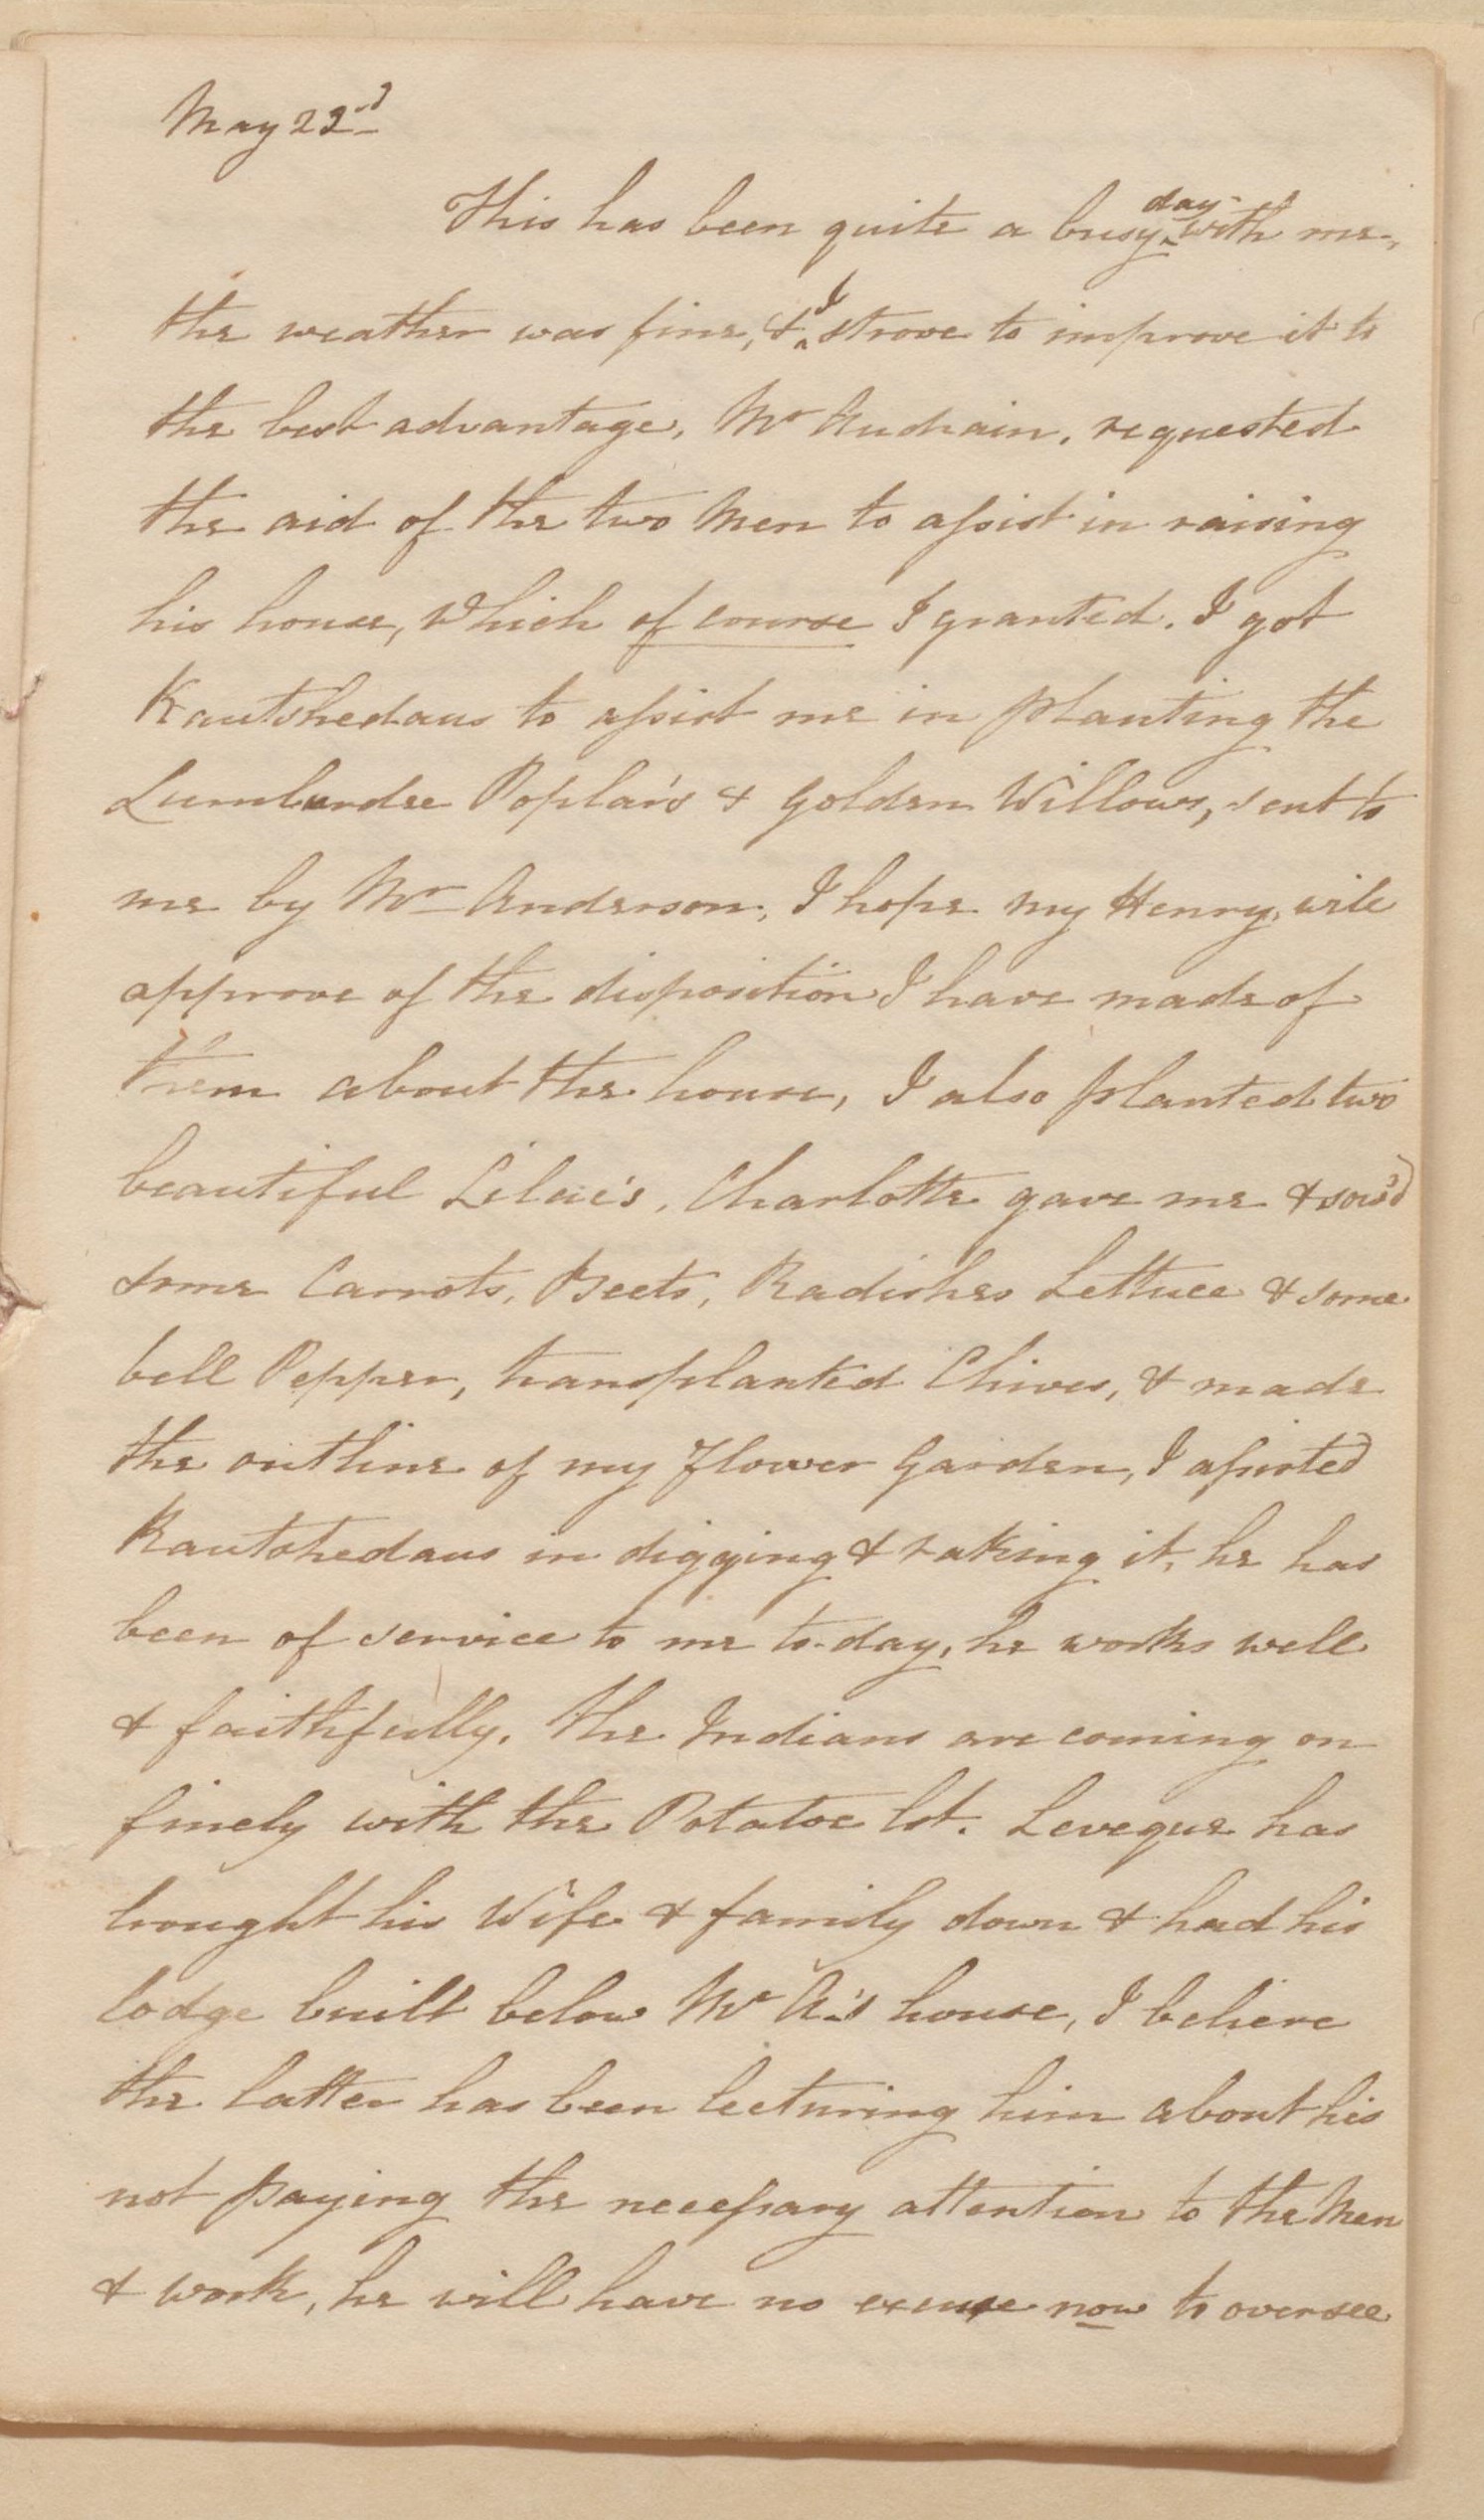 May 22nd
This has been quite a busy day with me,
the weather was fine, & I strove to improve it to
the best advantage, Mr Audrain, requested
the aid of the two Men to assist in raising
his house, which of course I granted. I got
Kautshedaus to assist me in planting the
Lumburdee Poplar's & Golden Willows, sent to
me by Mr Anderson, I hope my Henry, will
approve of the disposition I have made of
them about the house, I also planted two
beautiful Lilac's, Charlotte gave me & sow'd
some Carrots, Beets, Radishes Lettuce & some
bell Pepper, transplanted Chives, & made
the outline of my Flower Garden, I assisted
Kautshedaus in digging & raking it, he has
been of service to me to-day, he works well
& faithfully. The Indians are coming on
finely with the Potatoe lot. Leveque has
brought his Wife & family down & had his
lodge built below Mr A's house, I believe
the latter has been lecturing him about his
not paying the necessary attention to the Men
& work, he will have no excuse now to oversee